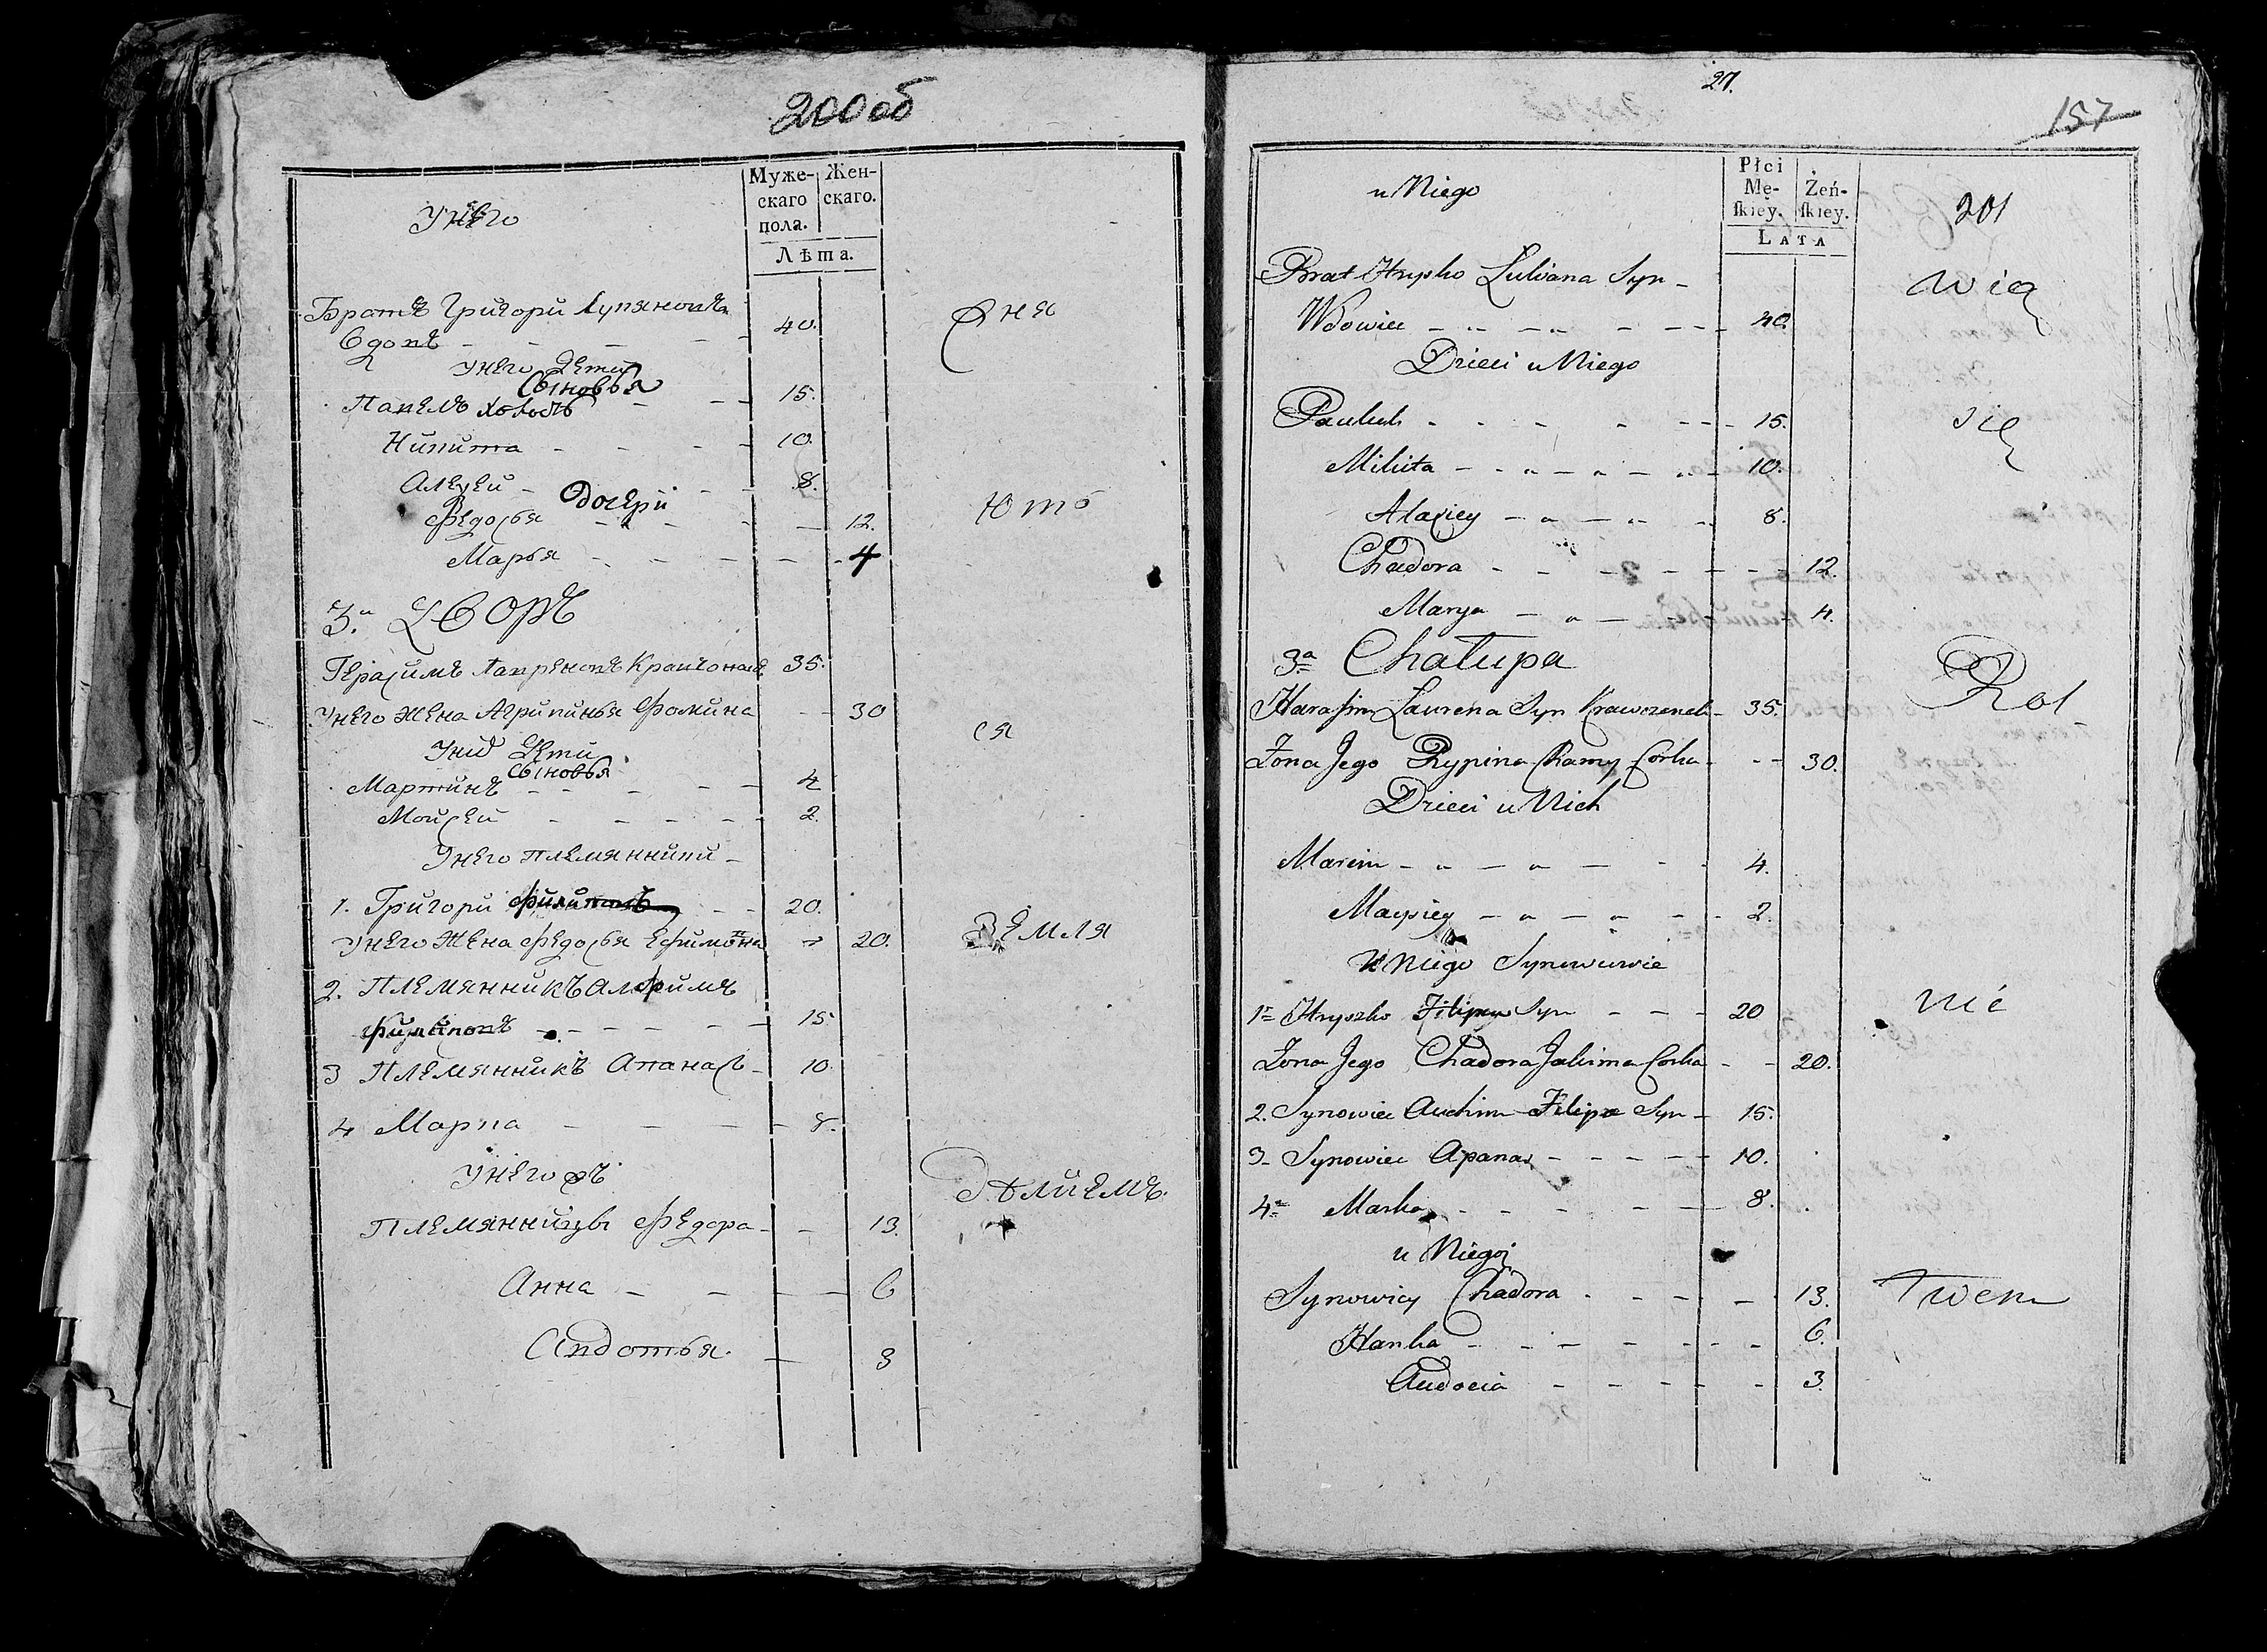 200 об
Муже-
скаго
пола.
Жен-
скаго.
Лѣта.
У него
Братъ Григори Лупяновъ
Вдовъ - - - - 40.
дня
У него Дети
Сыновья
Павелъ - - 15.
Никита - - - - 10.
Алексей - - - 8.
Дочери
Федосья - - - - 12.
ютъ
Марья - - - - - 4
3.й Дворъ
Герасимъ Лавреновъ 35.
У него жена Агрипинья Фомина - - 30
ся
У нихъ Дети
Сыновья
Мартинъ - - - - - 4
Мойсей - - - - - 2.
У него племянники -
1. Григори Филиповъ - - 20.
У него жена Федосья Ефимовна - 20.
Земля
2. Племянникъ Алфимъ
Филиповъ - - - - - - 15.
3 Племянникъ Апанасъ - 10.
4 Марка - - - - 8.
У него жъ
Дѣлиемъ.
Племянницы Федора - - 13.
Анна - - - - 6
Авдотья. - 3
27.
157
Płci
Mę-
ſkiey.
Żeń-
ſkiey.
Lata
201
u Niego
Brat Hrysko Lukiana Syn -
wią
Wdowiec - - - - - - - 40.
Dzieci u Niego
Pauluk - - - - - - - 15.
się
Mikita - - - - - - - - 10.
Alaxiey - - - - - 8.
Chadora - - - - - - - - 12.
Marya - - - - - - 4.
3a Chałupa
Rol
Harasim Laurena Syn Krawczenok - 35.
Żona Jego Rypina Chamy Corka - - - 30.
Dzieci u Nich
Marcin - - - - - - - 4.
Maysiey - - - - - - 2.
u Niego Synowcowie
1= Hryszko Filipa Syn - - - 20
nić
Żona Jego Chadora Jakima Corka - - 20.
2. Synowiec Auchim Filipa Syn - 15.
3- Synowiec Apanas - - - - - 10.
4= Marko - - - - - - 8.
u Niegoż
Synowicy Chadora - - - - - 13.
Twem
Hanka - - - - - - - 6.
Audocia - - - - - 3.